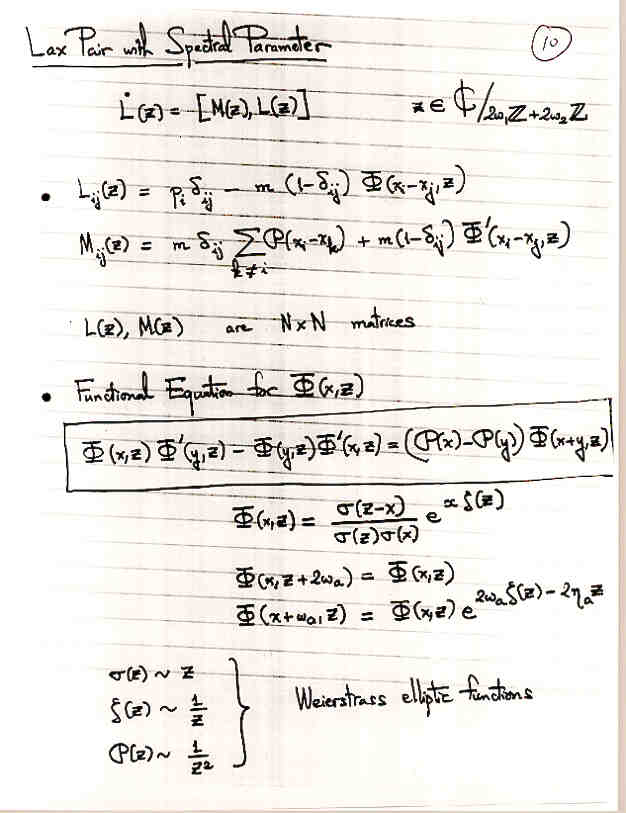 Lax Pair with Spectral Parameter
10
L̇(z) = [M(z), L(z)]    z ∈ ℂ/2ω₁ℤ+2ω₂ℤ
• L_ij(z) = p_i δ_ij − m (1−δ_ij) Φ(x_i−x_j, z)
M_ij(z) = m δ_ij ∑_{k≠i} ℘(x_i−x_k) + m(1−δ_ij) Φ'(x_i−x_j, z)
· L(z), M(z) are N×N matrices
• Functional Equation for Φ(x,z)
Φ(x,z) Φ'(y,z) − Φ(y,z) Φ'(x,z) = (℘(x)−℘(y)) Φ(x+y,z)
Φ(x,z) = σ(z−x)/σ(z)σ(x) e^{x ζ(z)}
Φ(x, z+2ω_a) = Φ(x,z)
Φ(x+ω_a, z) = Φ(x,z) e^{2ω_a ζ(z) − 2η_a z}
σ(z) ~ z
ζ(z) ~ 1/z
℘(z) ~ 1/z²
Weierstrass elliptic functions